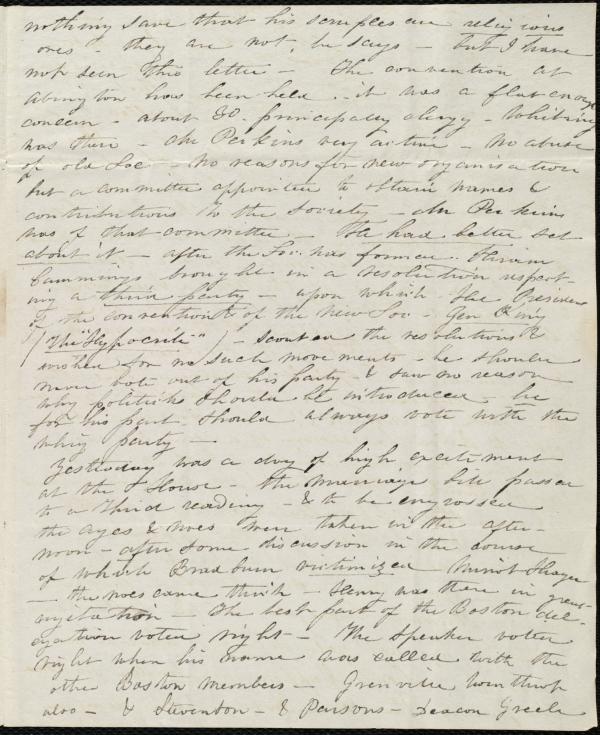 nothing save that his scruples are religious
ones - they are not, he says - but I have
not seen this letter - The convention at
Abington has been held .. it was a flat enough
concern - about 30. principally clergy - Whiting
was there - Mr Perkins very active - No abuse
of old Soc - No reasons for new organisation
but a committee appointed to obtain names &
contributions to the society - Mr Perkins
was of that committee - He had better set
about it - after the Soc. was formed. Hiram
Cummings brought in a resolution respect-
ing a third party - upon which the President
of the convention & of the new Soc -
("The Hypocrite") - scouted the resolutions &
wished for no such movements - he should
never vote out of his party - & saw no reason
why politics should be introduced - he
for his part should always vote with the
whig party -
Yesterday was a day of high excitement
at the S House - the marriage bill passed
to a third reading - & to be engrossed
the ayes & noes were taken in the after-
noon - after some discussion in the course
of which Bradburn victimized Minot Thayer
- the noes came thick - Henry was there in great
agitation - The best part of the Boston del-
egation voted right - The Speaker voted
right when his name was called with the
other Boston members - Grenville Winthrop
also - & Stevenson - & Parsons - Deacon Greele